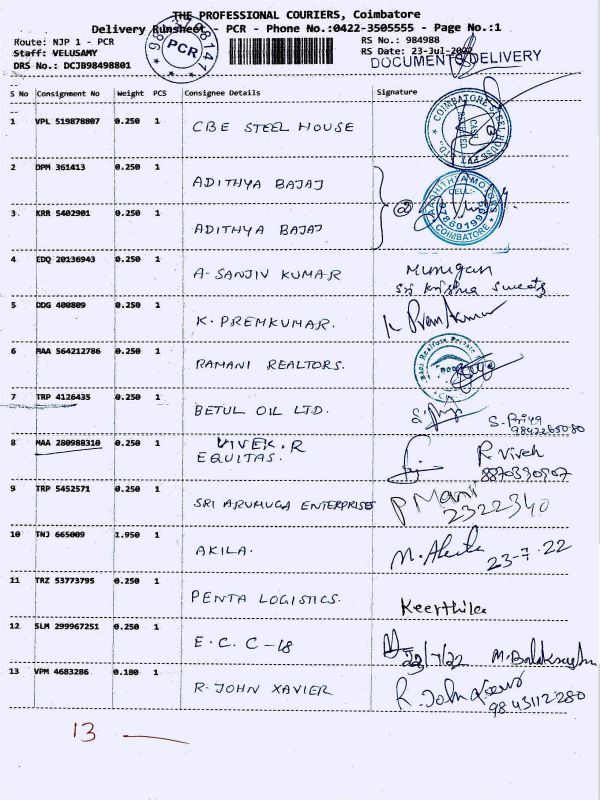 THE PROFESSIONAL COURIERS, Coimbatore
Delivery Runsheet - PCR - Phone No.:0422-3505555 - Page No.:1
Route: NJP 1 - PCR
RS No.: 984988
Staff: VELUSAMY
RS Date: 23-Jul-2022
DRS No.: DCJB98498801
PCR
DOCUMENTS DELIVERY
S No Consignment No Weight PCS Consignee Details Signature
1 VPL 519878807 0.250 1 CBE STEEL HOUSE
COIMBATORE STEEL HOUSE
2 DPM 361413 0.250 1 ADITHYA BAJAJ
CELL:
COIMBATORE
3 KRR 5402901 0.250 1 ADITHYA BAJAJ
4 EDQ 20136943 0.250 1 A-SANJIV KUMAR Murugan
sri krishna sweets
5 DDG 400809 0.250 1 K. PREMKUMAR. K Premkumar
6 MAA 564212786 0.250 1 RAMANI REALTORS.
7 TRP 4126435 0.250 1 BETUL OIL LTD. S. Priya
9842265080
8 MAA 280988310 0.250 1 VIVEK.R
EQUITAS. R Vivek
9 TRP 5452571 0.250 1 SRI ARUMUGA ENTERPRISES P Mani
2322340
10 TNJ 665009 1.950 1 AKILA. 23-7-22
11 TRZ 53773795 0.250 1 PENTA LOGISTICS. Keerthika
12 SLM 299967251 0.250 1 E.C.C-18 23/7/22
13 VPM 4683286 0.180 1 R. JOHN XAVIER R. John
9843112280
13